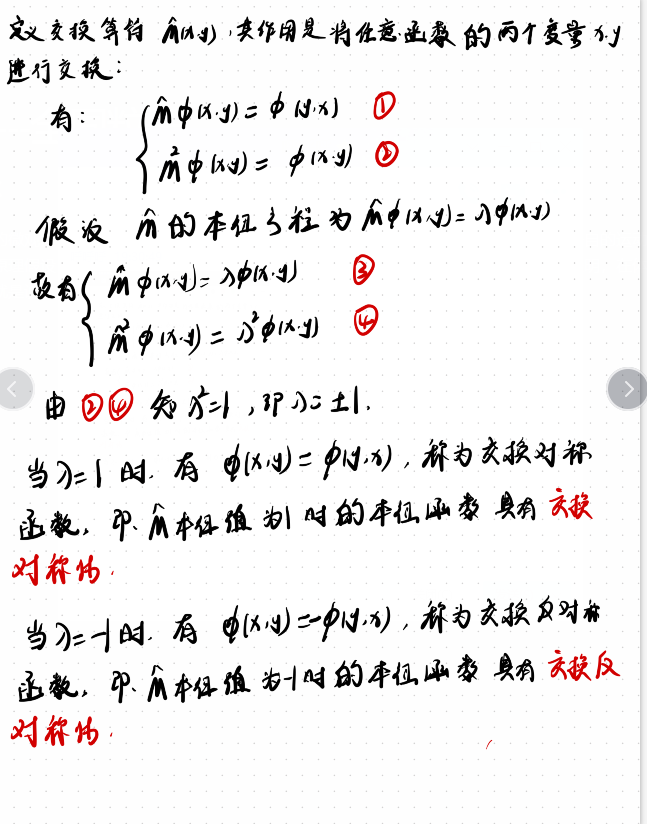 定义交换算符 m̂(x,y),其作用是将任意函数的两个变量 x.y
进行交换:
有: m̂ φ(x.y) = φ(y.x) ①
m̂² φ(x.y) = φ(x.y) ②
假设 m̂ 的本征方程为 m̂φ(x,y) = λφ(x.y)
故有 m̂ φ(x.y) = λφ(x.y) ③
m̂² φ(x.y) = λ²φ(x.y) ④
由 ②④ 知 λ²=1 ,即 λ = ±1.
当λ=1 时. 有 φ(x,y) = φ(y.x) , 称为交换对称
函数, 即. m̂ 本征值为1 时的本征函数 具有 交换
对称性.
当λ=-1时. 有 φ(x,y) = -φ(y.x) , 称为交换反对称
函数, 即. m̂ 本征值为-1时的本征函数 具有 交换反
对称性.